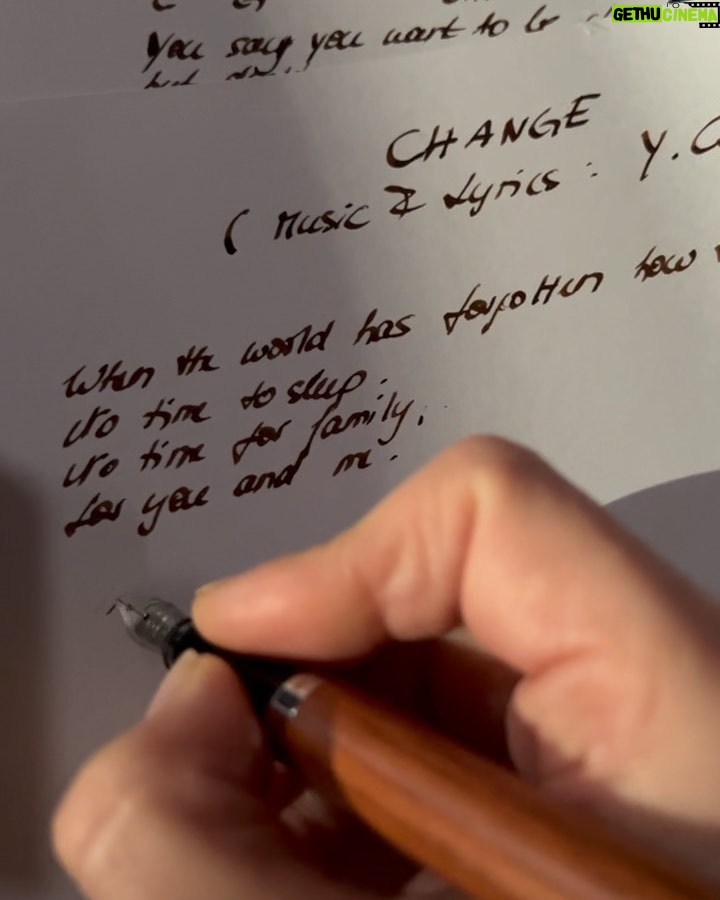 GETHUCINEMA
You say you want to be
CHANGE
( Music & Lyrics : Y.
When the world has forgotten how
No time to sleep.
No time for family.
for you and me.